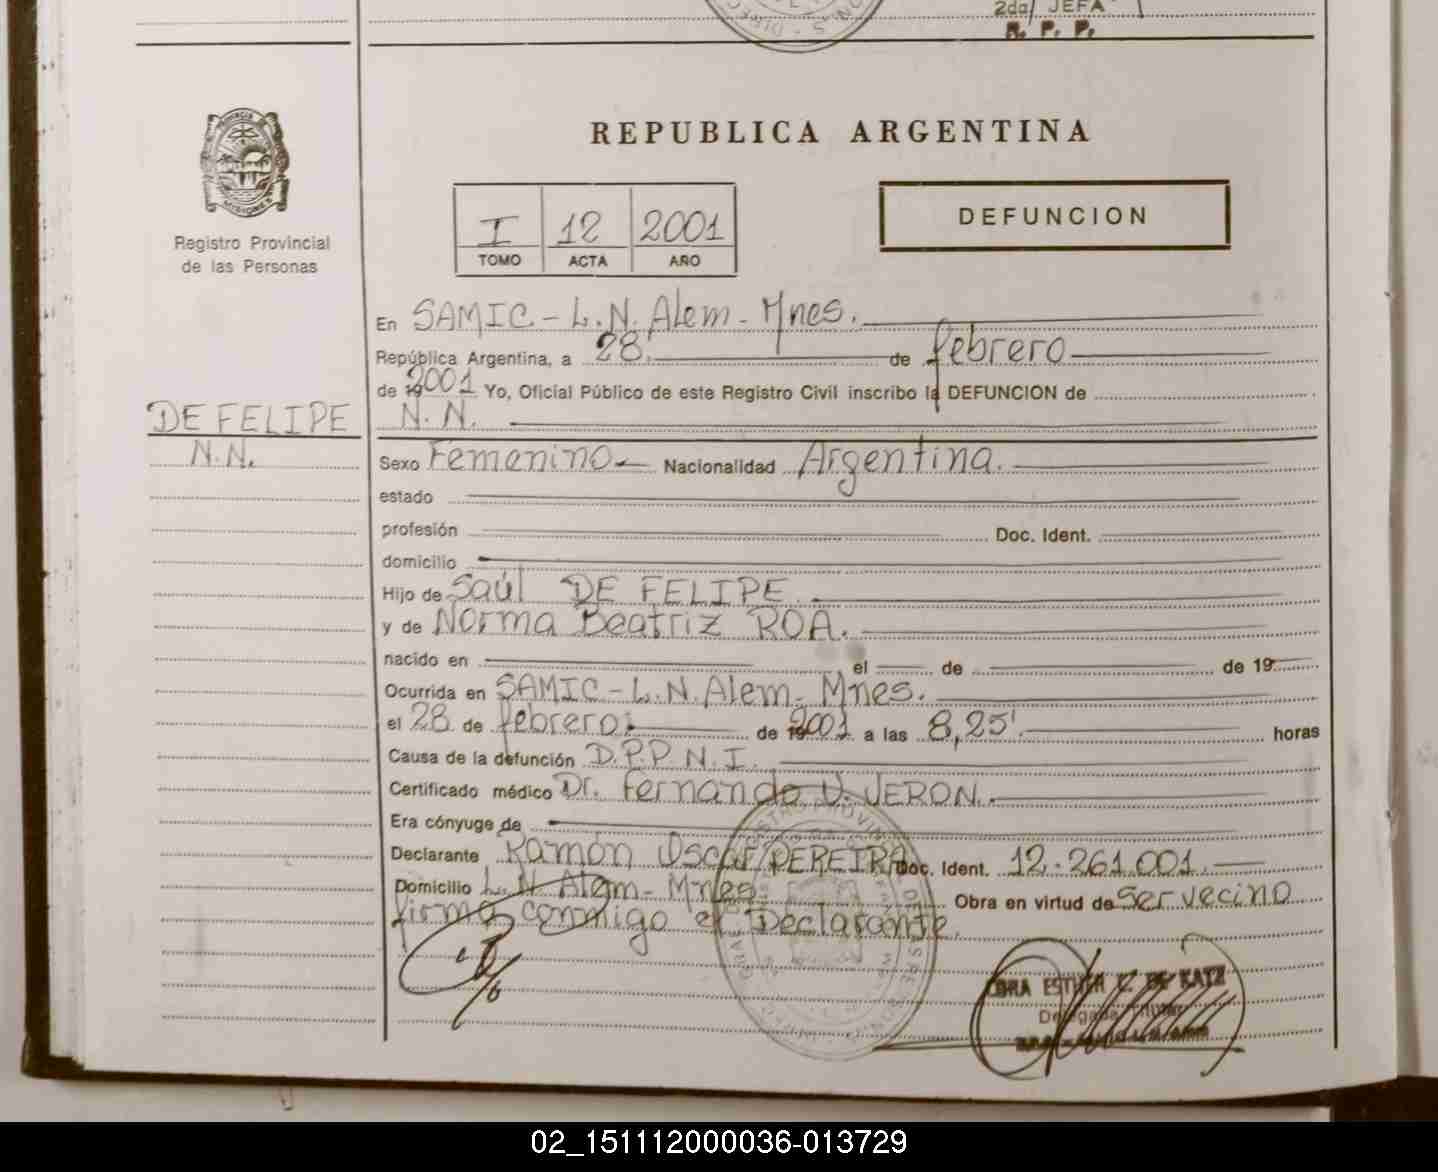 2da JEFA
R. P. P.
REPUBLICA ARGENTINA
PROVINCIA DE
MISIONES
Registro Provincial
de las Personas
I 12 2001
TOMO ACTA AÑO
DEFUNCION
En SAMIC - L.N. Alem - Mnes.
República Argentina, a 28 de febrero
de 2001 Yo, Oficial Público de este Registro Civil inscribo la DEFUNCION de
DE FELIPE
N.N.
N.N.
Sexo Femenino Nacionalidad Argentina.
estado
profesión Doc. Ident.
domicilio
Hijo de Saúl DE FELIPE
y de Norma Beatriz ROA.
nacido en el de de 19
Ocurrida en SAMIC - L.N. Alem - Mnes.
el 28 de febrero. de 2001 a las 8,25' horas
Causa de la defunción D.P.P.N.I.
Certificado médico Dr. Fernando V. VERON.
Era cónyuge de
Declarante Ramón Oscar PEREIRA Doc. Ident. 12.261.001.
Domicilio L.N. Alem - Mnes. Obra en virtud de ser vecino
firma conmigo el Declarante.
ESTHER C. DE KATZ
Delegada Titular
02_151112000036-013729